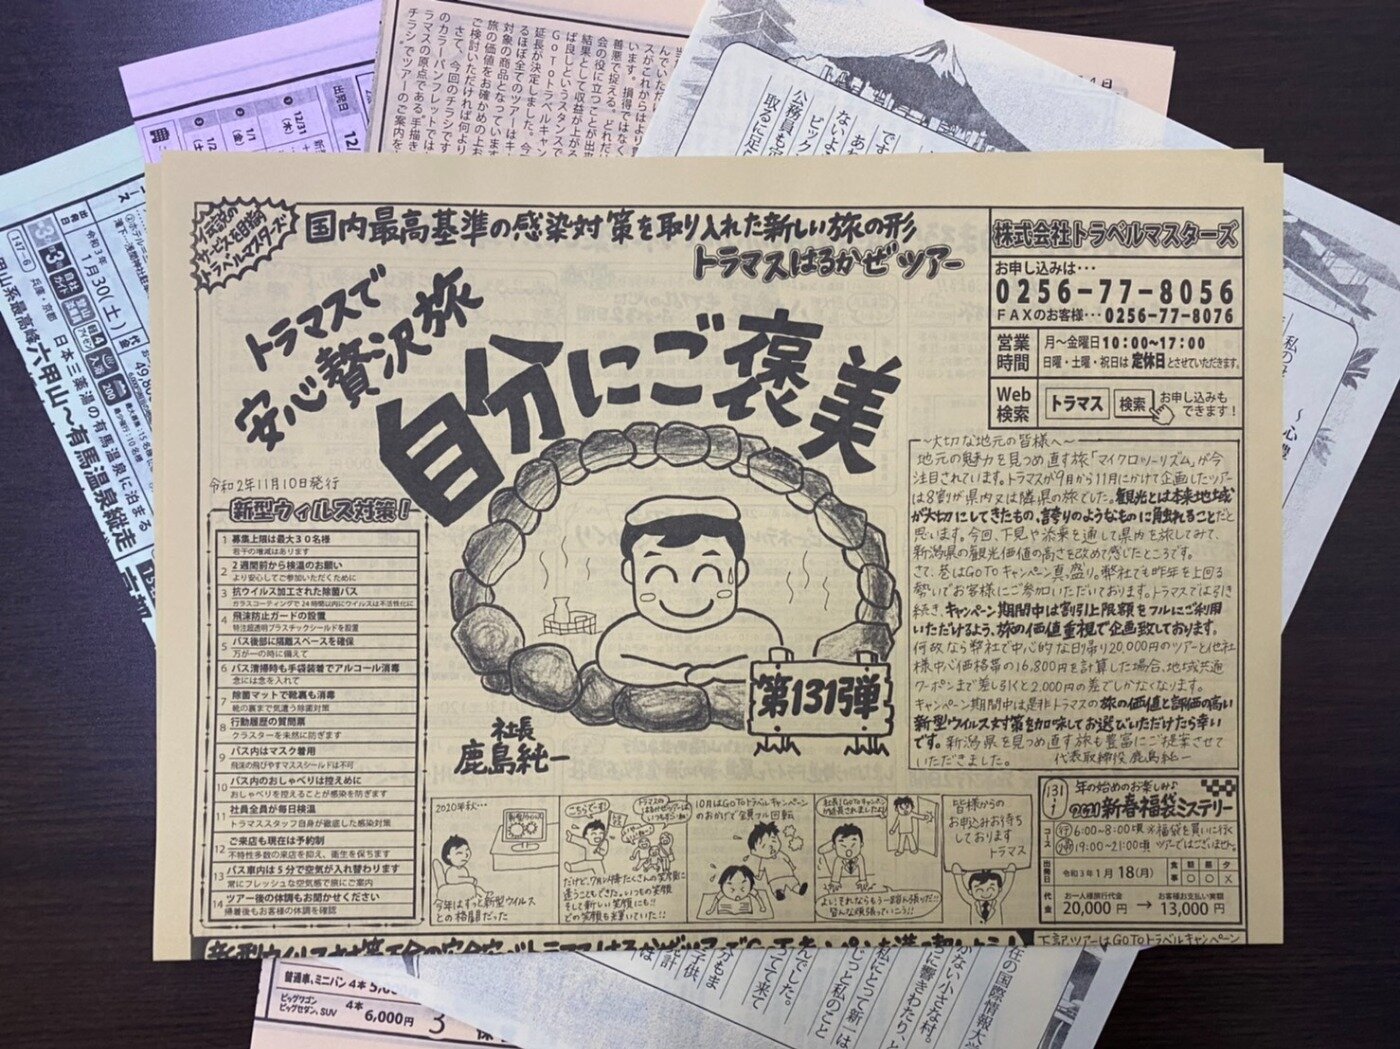 伝説の
サービスを目指す
トラベルマスターズ
国内最高基準の感染対策を取り入れた新しい旅の形
トラマスはるかぜツアー
トラマスで
安心贅沢旅
自分にご褒美
令和2年11月10日発行
新型ウィルス対策！
1 募集上限は最大３０名様
若干の増減はあります
2 ２週間前から検温のお願い
より安心してご参加いただくために
3 抗ウイルス加工された除菌バス
ガラスコーティングで24時間以内にウイルスは不活性化に
4 飛沫防止ガードの設置
特注超透明プラスチックシールドを設置
5 バス後部に隔離スペースを確保
万が一の時に備えて
6 バス清掃時も手袋装着でアルコール消毒
念には念を入れて
7 除菌マットで靴裏も消毒
靴の裏まで気遣う除菌対策
8 行動履歴の質問票
クラスターを未然に防ぎます
9 バス内はマスク着用
飛沫の飛びやすマスシールドは不可
10 バス内のおしゃべりは控えめに
おしゃべりを控えることが感染を防ぎます
11 社員全員が毎日検温
トラマススタッフ自身が徹底した感染対策
12 ご来店も現在は予約制
不特性多数の来店を抑え、衛生を保ちます
13 バス車内は５分で空気が入れ替わります
常にフレッシュな空気感で旅にご案内
14 ツアー後の体調もお聞かせください
帰着後もお客様の体調を確認
社長
鹿島純一
第131弾
株式会社トラベルマスターズ
お申し込みは･･･
0256-77-8056
ＦＡＸのお客様･･･0256-77-8076
営業時間
月～金曜日10:00～17:00
日曜・土曜・祝日は 定休日とさせていただきます。
Web検索
トラマス 検索 お申し込みもできます！
～大切な地元の皆様へ～
地元の魅力を見つめ直す旅「マイクロツーリズム」が今
注目されています。トラマスが9月から11月にかけて企画したツアー
は8割が県内又は隣県の旅でした。観光とは本来地域
が大切にしてきたもの、誇りのようなものに触れることだと
思います。今回、下見や添乗を通して県内を旅してみて、
新潟県の観光価値の高さを改めて感じたところです。
さて、巷はGOTOキャンペーン真っ盛り。弊社でも昨年を上回る
勢いでお客様にご参加いただいております。トラマスでは引き
続き、キャンペーン期間中は割引上限額をフルにご利用
いただけるよう、旅の価値重視で企画致しております。
何故なら弊社で中心的な日帰り20,000円のツアーと他社
様中心価格帯の16,800円を計算した場合、地域共通
クーポンまで差し引くと2,000円の差でしかなくなります。
キャンペーン期間中は是非トラマスの旅の価値と評価の高い
新型ウイルス対策を加味してお選びいただけたら幸い
です。新潟県を見つめ直す旅も豊富にご提案させて
いただきました。 代表取締役 鹿島純一
2020年秋…
新型ウイルス
今年はずっと新型ウイルス
との格闘だった
こちらでーす！
トラマスの
はるかぜツアーは
いつもすごいね！
だけど、7月から沢山のお客様に
逢うこともできた。いつもの笑顔
そして新しい笑顔にも!!
どの笑顔も輝いていた!!
10月はGOTOトラベルキャンペーン
のおかげで全員フル回転
社長！GOTOキャンペーン
が延長されましたよ！
よし！それならもう一踏ん張りだ!!
皆んな頑張っていこう!!
皆様からの
お申込みお待ち
しております
トラマス
131-1
年の始めのお楽しみ♪
2021新春福袋ミステリー
コース
行 6:00～8:00頃 ※福袋を買いに行く
帰 19:00～21:00頃 ツアーではございません。
出発日 令和３年１月 18(月)
食事 朝 昼 夕
○ ○ ×
代金
お一人様旅行代金 お客様お支払い実額
20,000円 → 13,000円
下記ツアーはGOTOトラベルキャンペーン
出発日
12/31
(木)
1/1
(金)
1/2
(土)
令和３年
1月30(土)
代金
兵庫・京都
日本三薬湯の有馬温泉に泊まる
六甲山～有馬温泉縦走
147-6
います。損得ではなく
善悪で捉える。どれだけ
会の役に立つことが出来
結果として収益が上がる
ば良しというスタンスで
GoToトラベルキャン
延長が決定しました。今
るほぼ全てのツアーはキャ
対象の商品となっています
旅の価値をお確かめの上お
ご検討いただければ何より
さて、今回のチラシです
のカラーパンフレットでは
ラマスの原点である手描き
チラシでツアーのご案内を
ないよ
ビック
公務員も
取るに足
普通車、ミニバン 4本
ビッグワゴン
ビッグセダン、SUV
4本
6,000円
在の国際情報大学
かない小さな村。
ちに響きわたり、と
私にとって新一は
じっと私のこと
んでした。
って来て
分もま
子供